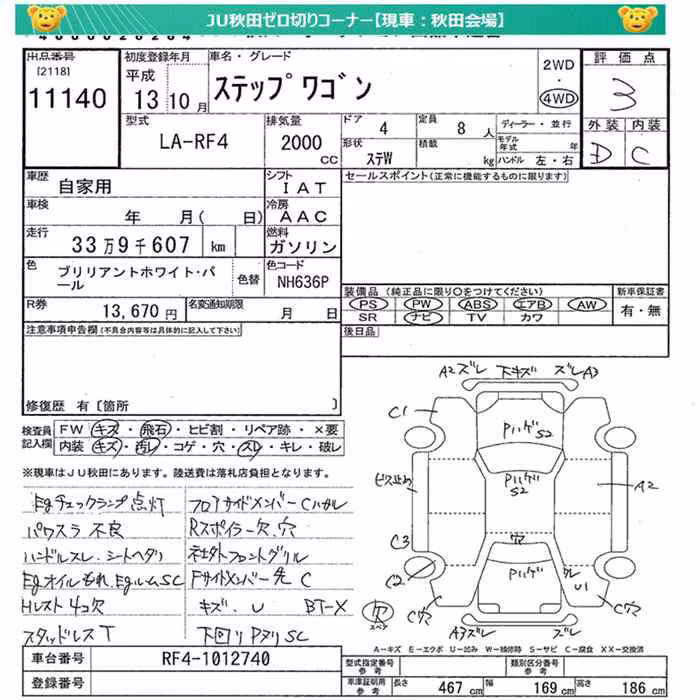 JU秋田ゼロ切りコーナー【現車：秋田会場】
出品番号
[2118]
11140
初度登録年月
平成
13 10月
車名・グレード
ステップワゴン
2WD
・
4WD
評価点
3
外装 内装
D C
型式
LA-RF4
排気量
2000
CC
ドア 4
定員 8人
形状 ステW
積載 kg
ディーラー・並行
モデル年式 年
ハンドル 左・右
車歴
自家用
シフト
IAT
セールスポイント(正常に機能するものに限ります)
車検
年 月( 日)
冷房
AAC
走行
33万9千607 km
燃料
ガソリン
色
ブリリアントホワイト・パール
色替
色コード
NH636P
R券
13,670円
名変通知期限
月 日
装備品(純正品に限り○をつけてください)
PS PW ABS エアB AW
SR ナビ TV カワ
新車保証書
有・無
後日品
注意事項申告欄(不具合内容等は具体的に記入して下さい)
修復歴 有〔箇所 〕
検査員記入欄
FW キズ・飛石・ヒビ割・リペア跡・×要
内装 キズ・汚レ・コゲ・穴・スレ・キレ・破レ
※現車はJU秋田にあります。陸送費は落札店負担となります。
Egチェックランプ点灯
パワスラ不良
ハンドルスレ、シートヘタリ
Egオイルもれ、EgルームSC
Hレスト4コ欠
スタッドレスT
フロアサイドメンバーCハガル
Rスポイラー欠、穴
社外フロントグリル
Fサイドメンバー先C
キズ、U BT-X
下回りPヌリSC
A2ズレ 下キズ ズレA3
C1
Pハゲ
S2
Pハゲ
S2
ビス止め
A2
C3
穴
C2
Pハゲ
U1
欠
スペア
C穴
C穴
Aヲズレ
ズレ
A－キズ E－エクボ U－凹み W－補修跡 S－サビ C－腐食 XX－交換済
車台番号
RF4-1012740
登録番号
型式指定番号
参考
類別区分番号
参考
車庫証明用
参考
長さ 467cm
幅 169cm
高さ 186cm